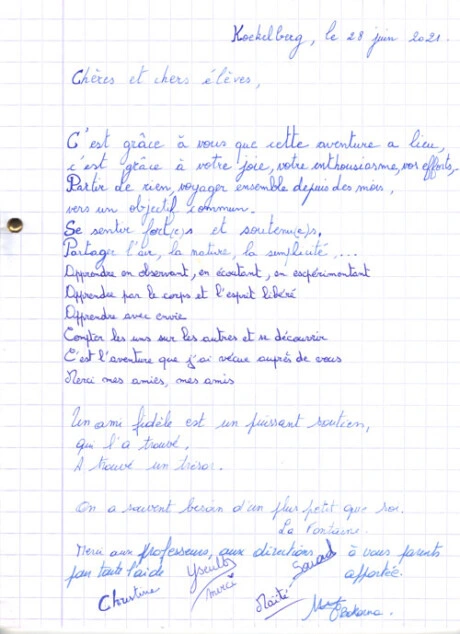 Koekelberg, le 28 juin 2021.
Chères et chers élèves,
C'est grâce à vous que cette aventure a lieu,
c'est grâce à votre joie, votre enthousiasme, vos efforts,
Partir de rien, voyager ensemble depuis des mois,
vers un objectif commun.
Se sentir fort(e)s et soutenu(e)s,
Partager l'air, la nature, la simplicité, ...
Apprendre en observant, en écoutant, en expérimentant
Apprendre par le corps et l'esprit libéré
Apprendre avec envie
Compter les uns sur les autres et se découvrir
C'est l'aventure que j'ai vécue auprès de vous
Merci mes amies, mes amis
Un ami fidèle est un puissant soutien,
qui l'a trouvé.
A trouvé un trésor.
On a souvent besoin d'un plus petit que soi.
La Fontaine.
Merci aux professeurs, aux directions, à vos parents
pour toute l'aide apportée.
Christine
Merci
Maïté
Souad